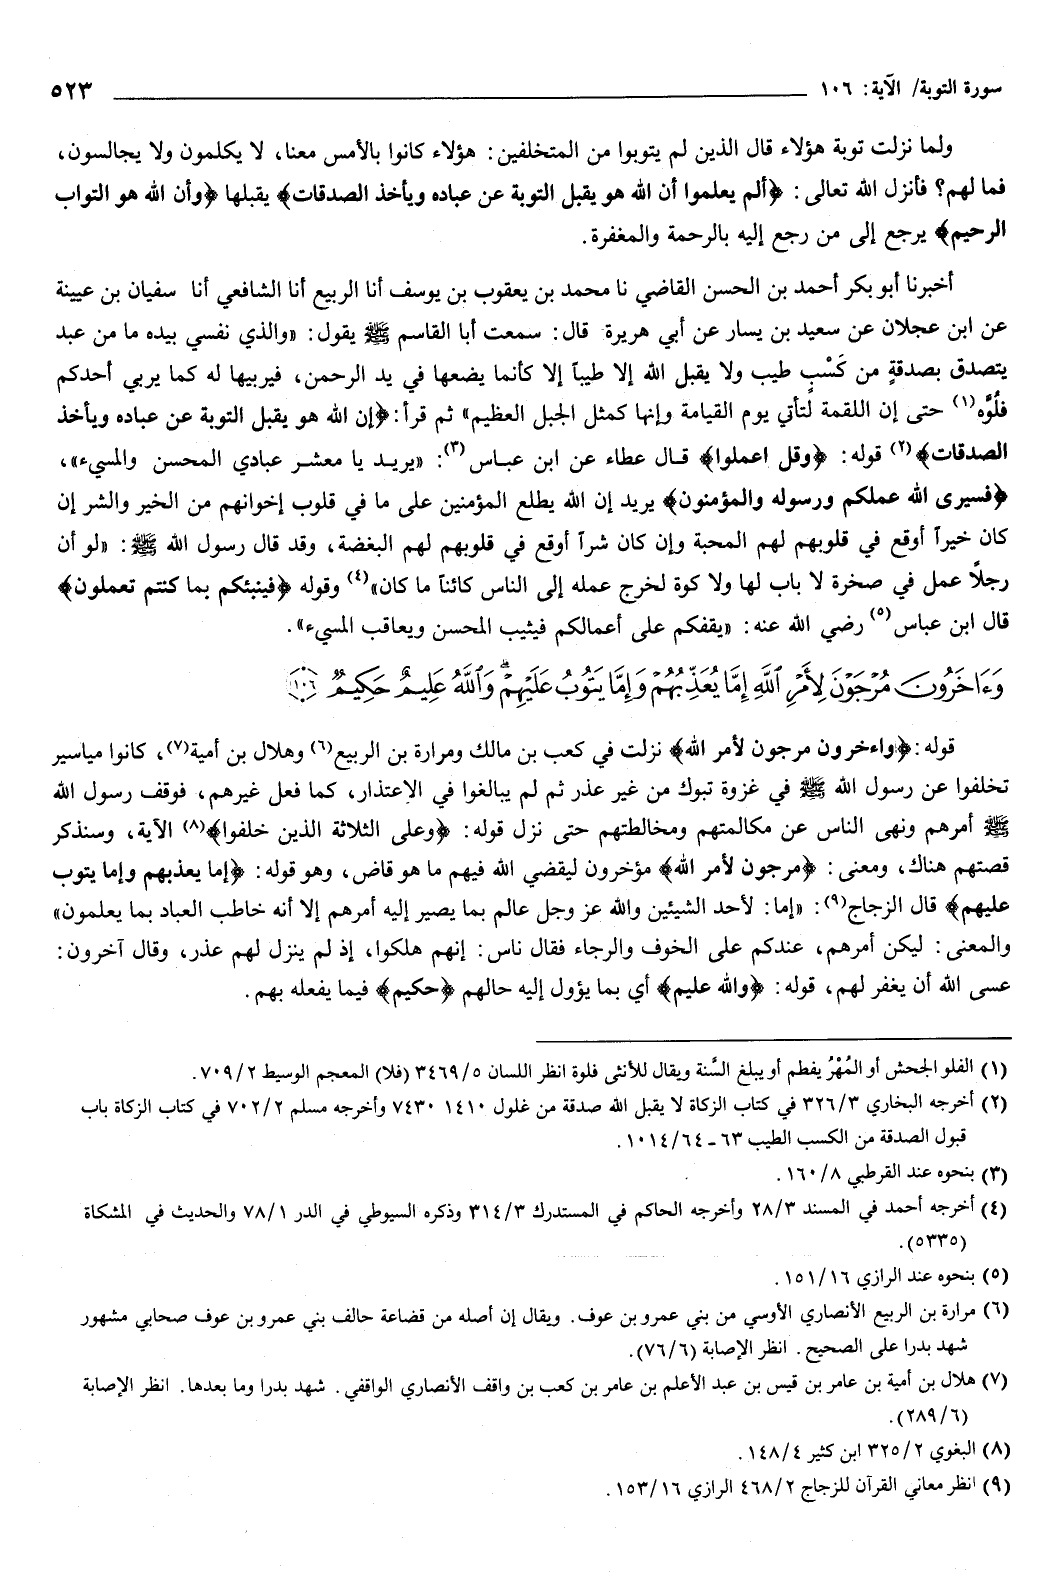 سورة التوبة/ الآية: ١٠٦ ٥٢٣
ولما نزلت توبة هؤلاء قال الذين لم يتوبوا من المتخلفين: هؤلاء كانوا بالأمس معنا، لا يكلمون ولا يجالسون،
فما لهم؟ فأنزل الله تعالى: ﴿ألم يعلموا أن الله هو يقبل التوبة عن عباده ويأخذ الصدقات﴾ يقبلها ﴿وأن الله هو التواب
الرحيم﴾ يرجع إلى من رجع إليه بالرحمة والمغفرة.
أخبرنا أبو بكر أحمد بن الحسن القاضي نا محمد بن يعقوب بن يوسف أنا الربيع أنا الشافعي أنا سفيان بن عيينة
عن ابن عجلان عن سعيد بن يسار عن أبي هريرة قال: سمعت أبا القاسم ﷺ يقول: «والذي نفسي بيده ما من عبد
يتصدق بصدقةٍ من كَسْبٍ طيب ولا يقبل الله إلا طيباً إلا كأنما يضعها في يد الرحمن، فيربيها له كما يربي أحدكم
فلُوَّه(١) حتى إن اللقمة لتأتي يوم القيامة وإنها كمثل الجبل العظيم» ثم قرأ: ﴿إن الله هو يقبل التوبة عن عباده ويأخذ
الصدقات﴾(٢) قوله: ﴿وقل اعملوا﴾ قال عطاء عن ابن عباس(٣): «يريد يا معشر عبادي المحسن والمسيء»،
﴿فسيرى الله عملكم ورسوله والمؤمنون﴾ يريد إن الله يطلع المؤمنين على ما في قلوب إخوانهم من الخير والشر إن
كان خيراً أوقع في قلوبهم لهم المحبة وإن كان شراً أوقع في قلوبهم لهم البغضة، وقد قال رسول الله ﷺ: «لو أن
رجلاً عمل في صخرة لا باب لها ولا كوة لخرج عمله إلى الناس كائناً ما كان»(٤) وقوله ﴿فينبئكم بما كنتم تعملون﴾
قال ابن عباس(٥) رضي الله عنه: «يقفكم على أعمالكم فيثيب المحسن ويعاقب المسيء».
وَءَاخَرُونَ مُرْجَوْنَ لِأَمْرِ ٱللَّهِ إِمَّا يُعَذِّبُهُمْ وَإِمَّا يَتُوبُ عَلَيْهِمْ ۗ وَٱللَّهُ عَلِيمٌ حَكِيمٌ ١٠٦
قوله: ﴿واءخرون مرجون لأمر الله﴾ نزلت في كعب بن مالك ومرارة بن الربيع(٦) وهلال بن أمية(٧)، كانوا مياسير
تخلفوا عن رسول الله ﷺ في غزوة تبوك من غير عذر ثم لم يبالغوا في الاعتذار، كما فعل غيرهم، فوقف رسول الله
ﷺ أمرهم ونهى الناس عن مكالمتهم ومخالطتهم حتى نزل قوله: ﴿وعلى الثلاثة الذين خلفوا﴾(٨) الآية، وسنذكر
قصتهم هناك، ومعنى: ﴿مرجون لأمر الله﴾ مؤخرون ليقضي الله فيهم ما هو قاض، وهو قوله: ﴿إما يعذبهم وإما يتوب
عليهم﴾ قال الزجاج(٩): «إما: لأحد الشيئين والله عز وجل عالم بما يصير إليه أمرهم إلا أنه خاطب العباد بما يعلمون»
والمعنى: ليكن أمرهم، عندكم على الخوف والرجاء فقال ناس: إنهم هلكوا، إذ لم ينزل لهم عذر، وقال آخرون:
عسى الله أن يغفر لهم، قوله: ﴿والله عليم﴾ أي بما يؤول إليه حالهم ﴿حكيم﴾ فيما يفعله بهم.
(١) الفلو الجحش أو المُهْرُ يفطم أو يبلغ السَّنة ويقال للأنثى فلوة انظر اللسان ٣٤٦٩/٥ (فلا) المعجم الوسيط ٧٠٩/٢.
(٢) أخرجه البخاري ٣٢٦/٣ في كتاب الزكاة لا يقبل الله صدقة من غلول ١٤١٠ ٧٤٣٠ وأخرجه مسلم ٧٠٢/٢ في كتاب الزكاة باب
قبول الصدقة من الكسب الطيب ٦٣ ـ ١٠١٤/٦٤.
(٣) بنحوه عند القرطبي ١٦٠/٨.
(٤) أخرجه أحمد في المسند ٢٨/٣ وأخرجه الحاكم في المستدرك ٣١٤/٣ وذكره السيوطي في الدر ٧٨/١ والحديث في المشكاة
(٥٣٣٥).
(٥) بنحوه عند الرازي ١٥١/١٦.
(٦) مرارة بن الربيع الأنصاري الأوسي من بني عمرو بن عوف. ويقال إن أصله من قضاعة حالف بني عمرو بن عوف صحابي مشهور
شهد بدرا على الصحيح. انظر الإصابة (٧٦/٦).
(٧) هلال بن أمية بن عامر بن قيس بن عبد الأعلم بن عامر بن كعب بن واقف الأنصاري الواقفي. شهد بدرا وما بعدها. انظر الإصابة
(٢٨٩/٦).
(٨) البغوي ٣٢٥/٢ ابن كثير ١٤٨/٤.
(٩) انظر معاني القرآن للزجاج ٤٦٨/٢ الرازي ١٥٣/١٦.